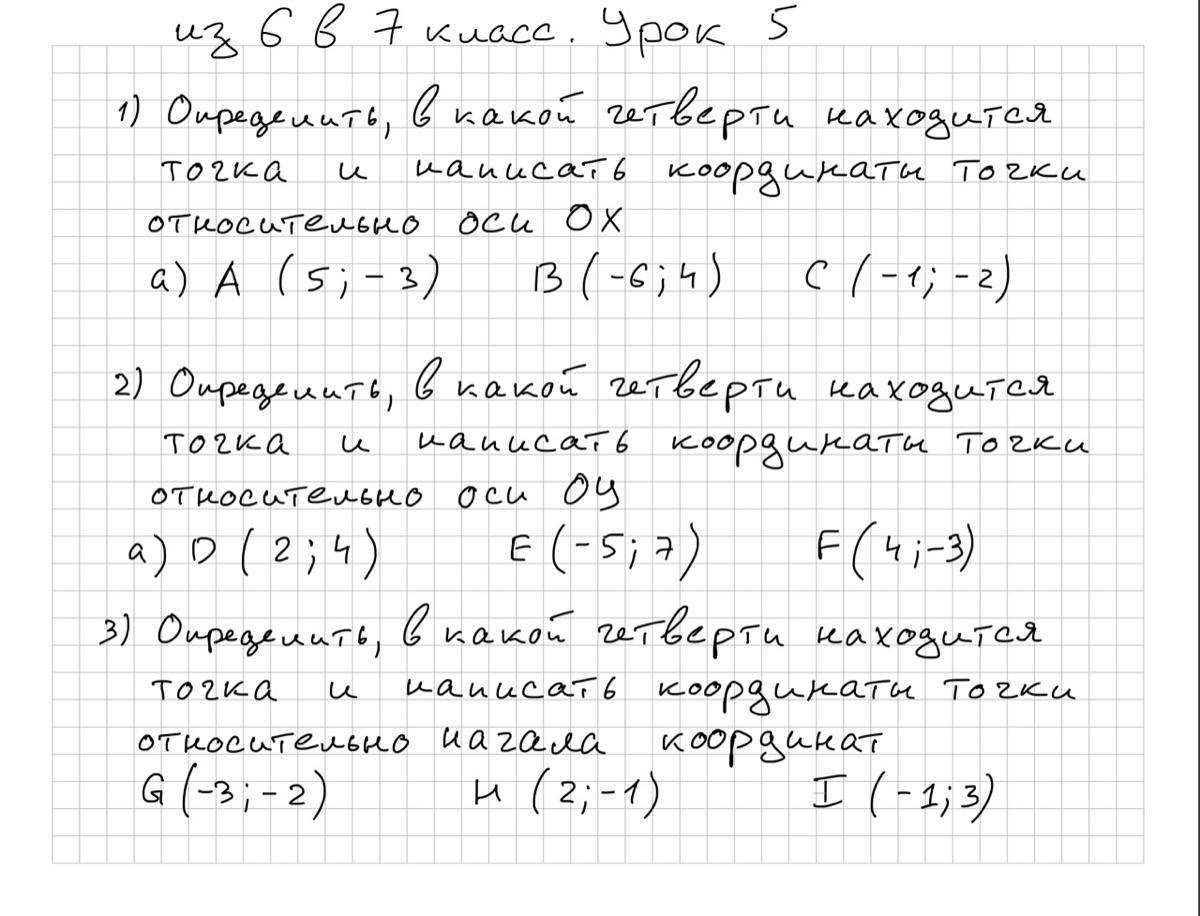 из 6 в 7 класс. Урок 5
1) Определить, в какой четверти находится
точка и написать координаты точки
относительно оси OX
а) A (5; -3) B (-6; 4) C (-1; -2)
2) Определить, в какой четверти находится
точка и написать координаты точки
относительно оси ОУ
а) D (2; 4) E (-5; 7) F (4; -3)
3) Определить, в какой четверти находится
точка и написать координаты точки
относительно начала координат
G (-3; -2) H (2; -1) I (-1; 3)